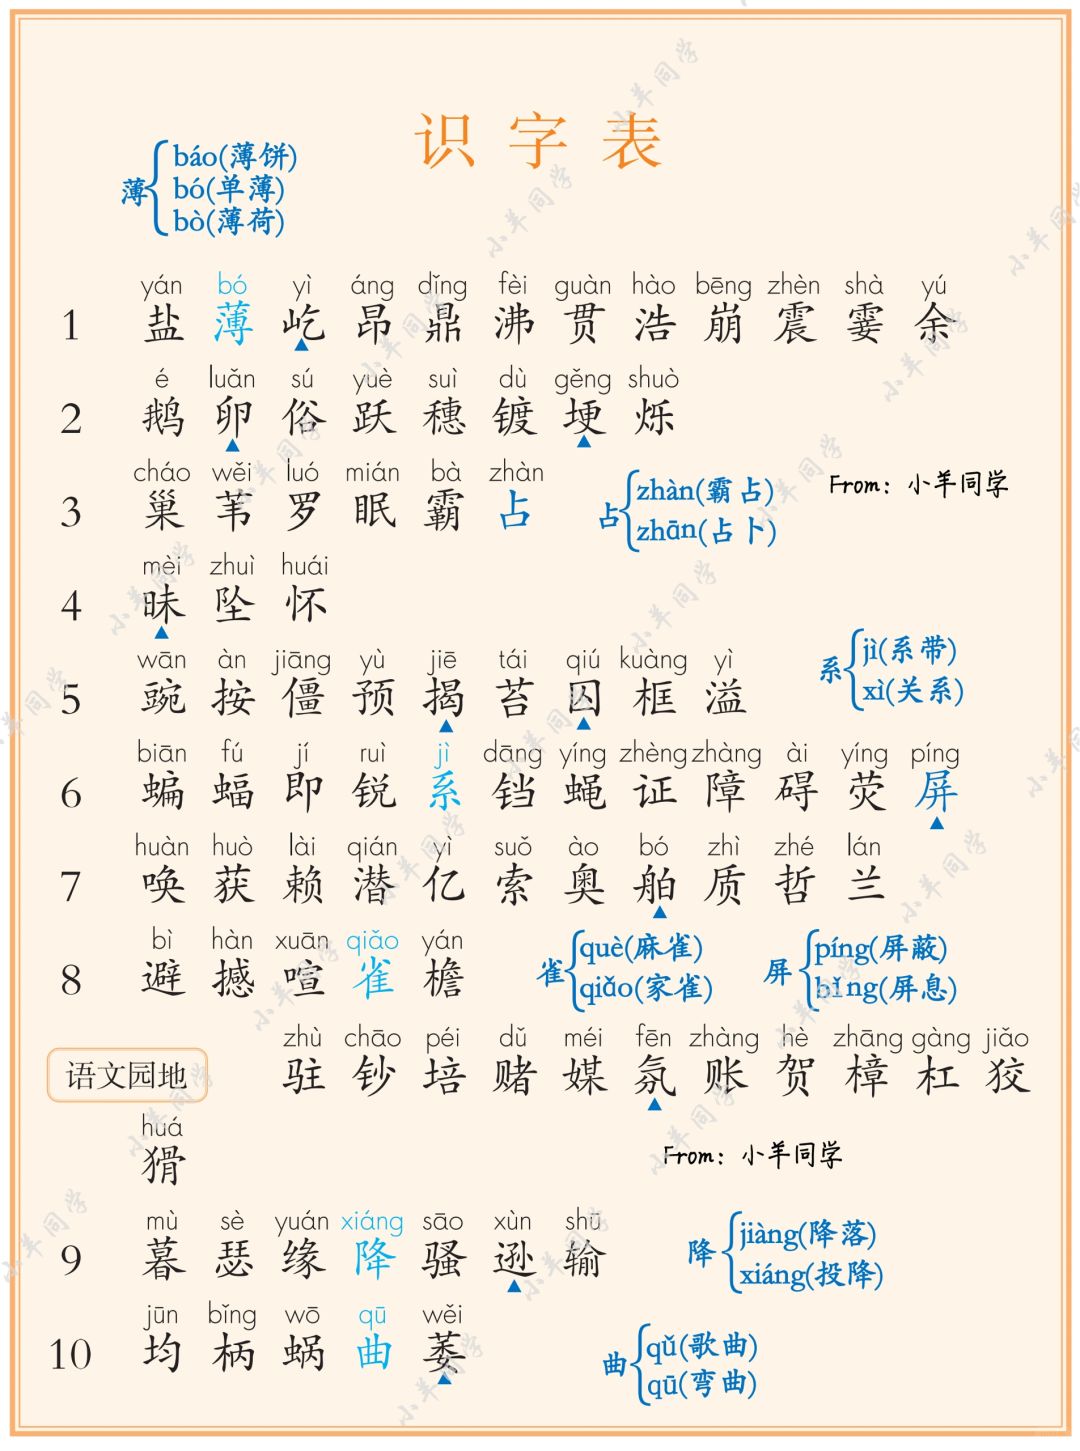 识字表
薄 báo(薄饼)
bó(单薄)
bò(薄荷)
yán bó yì áng dǐng fèi guàn hào bēng zhèn shà yú
1 盐 薄 屹 昂 鼎 沸 贯 浩 崩 震 霎 余
é luǎn sú yuè suì dù gěng shuò
2 鹅 卵 俗 跃 穗 镀 埂 烁
cháo wěi luó mián bà zhàn
3 巢 苇 罗 眠 霸 占
占 zhàn(霸占)
zhān(占卜)
From：小羊同学
mèi zhuì huái
4 昧 坠 怀
wān àn jiāng yù jiē tái qiú kuàng yì
5 豌 按 僵 预 揭 苔 囚 框 溢
系 jì(系带)
xì(关系)
biān fú jí ruì jì dāng yíng zhèng zhàng ài yíng píng
6 蝙 蝠 即 锐 系 铛 蝇 证 障 碍 荧 屏
huàn huò lài qián yì suǒ ào bó zhì zhé lán
7 唤 获 赖 潜 亿 索 奥 舶 质 哲 兰
bì hàn xuān qiǎo yán
8 避 撼 喧 雀 檐
雀 què(麻雀)
qiǎo(家雀)
屏 píng(屏蔽)
bǐng(屏息)
zhù chāo péi dǔ méi fēn zhàng hè zhāng gàng jiǎo
语文园地 驻 钞 培 赌 媒 氛 账 贺 樟 杠 狡
huá
猾
From：小羊同学
mù sè yuán xiáng sāo xùn shū
9 暮 瑟 缘 降 骚 逊 输
降 jiàng(降落)
xiáng(投降)
jūn bǐng wō qū wěi
10 均 柄 蜗 曲 萎
曲 qǔ(歌曲)
qū(弯曲)
小羊同学